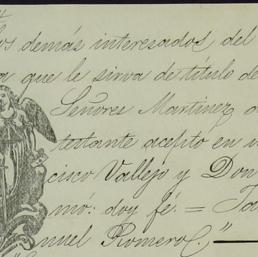 los demás interesados del
que le sirva de título de
Señores Martinez
testante acepto en
cisco Vallejo y Don
mó: doy fé. =
nuel Romero."